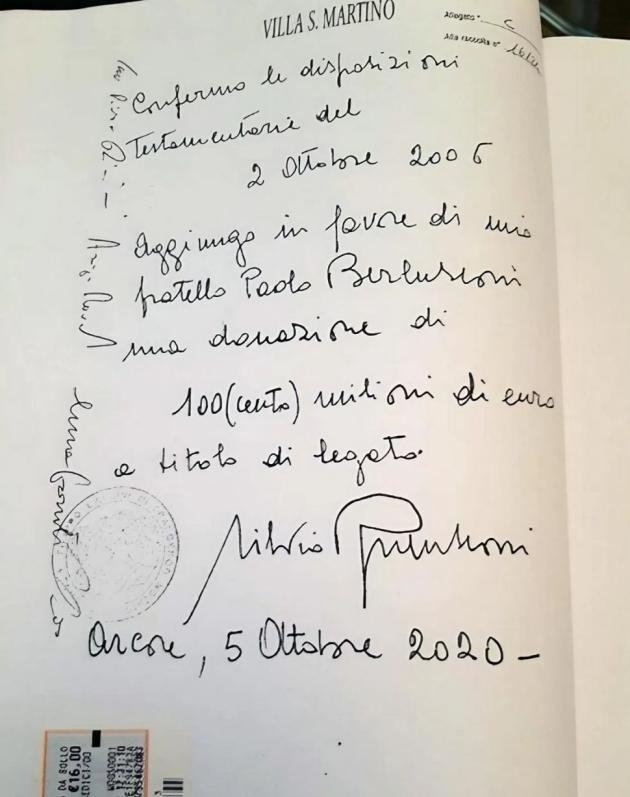 VILLA S. MARTINO
Allegato "C
Alla raccolta n°
Confermo le disposizioni
Testamentarie del
2 Ottobre 2006
Aggiungo in favore di mio
fratello Paolo Berlusconi
una donazione di
100 (cento) milioni di euro
a titolo di legato.
Silvio Berlusconi
Arcore, 5 Ottobre 2020 -
DA BOLLO
€16,00